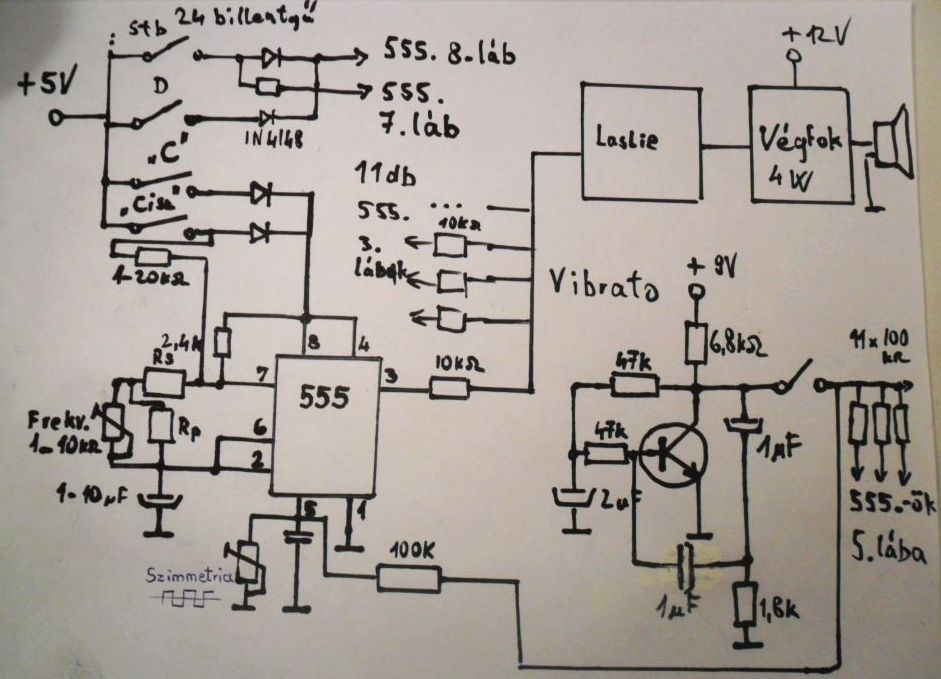 stb 24 billentyű
+5V
D
555. 8.láb
555.
7.láb
1N4148
„C"
„Cisz"
1-20kΩ
11db
555. ...
3.
lábak
10kΩ
Leslie
+12V
Végfok
4W
Vibrato
+9V
6,8kΩ
47k
47k
2µF
1µF
1µF
1,8k
11x100
kΩ
555.-ök
5.lába
2,4k
Rs
Rp
Frekv.
1-10kΩ
1-10µF
555
8
4
7
3
6
2
5
1
10kΩ
100K
Szimmetria